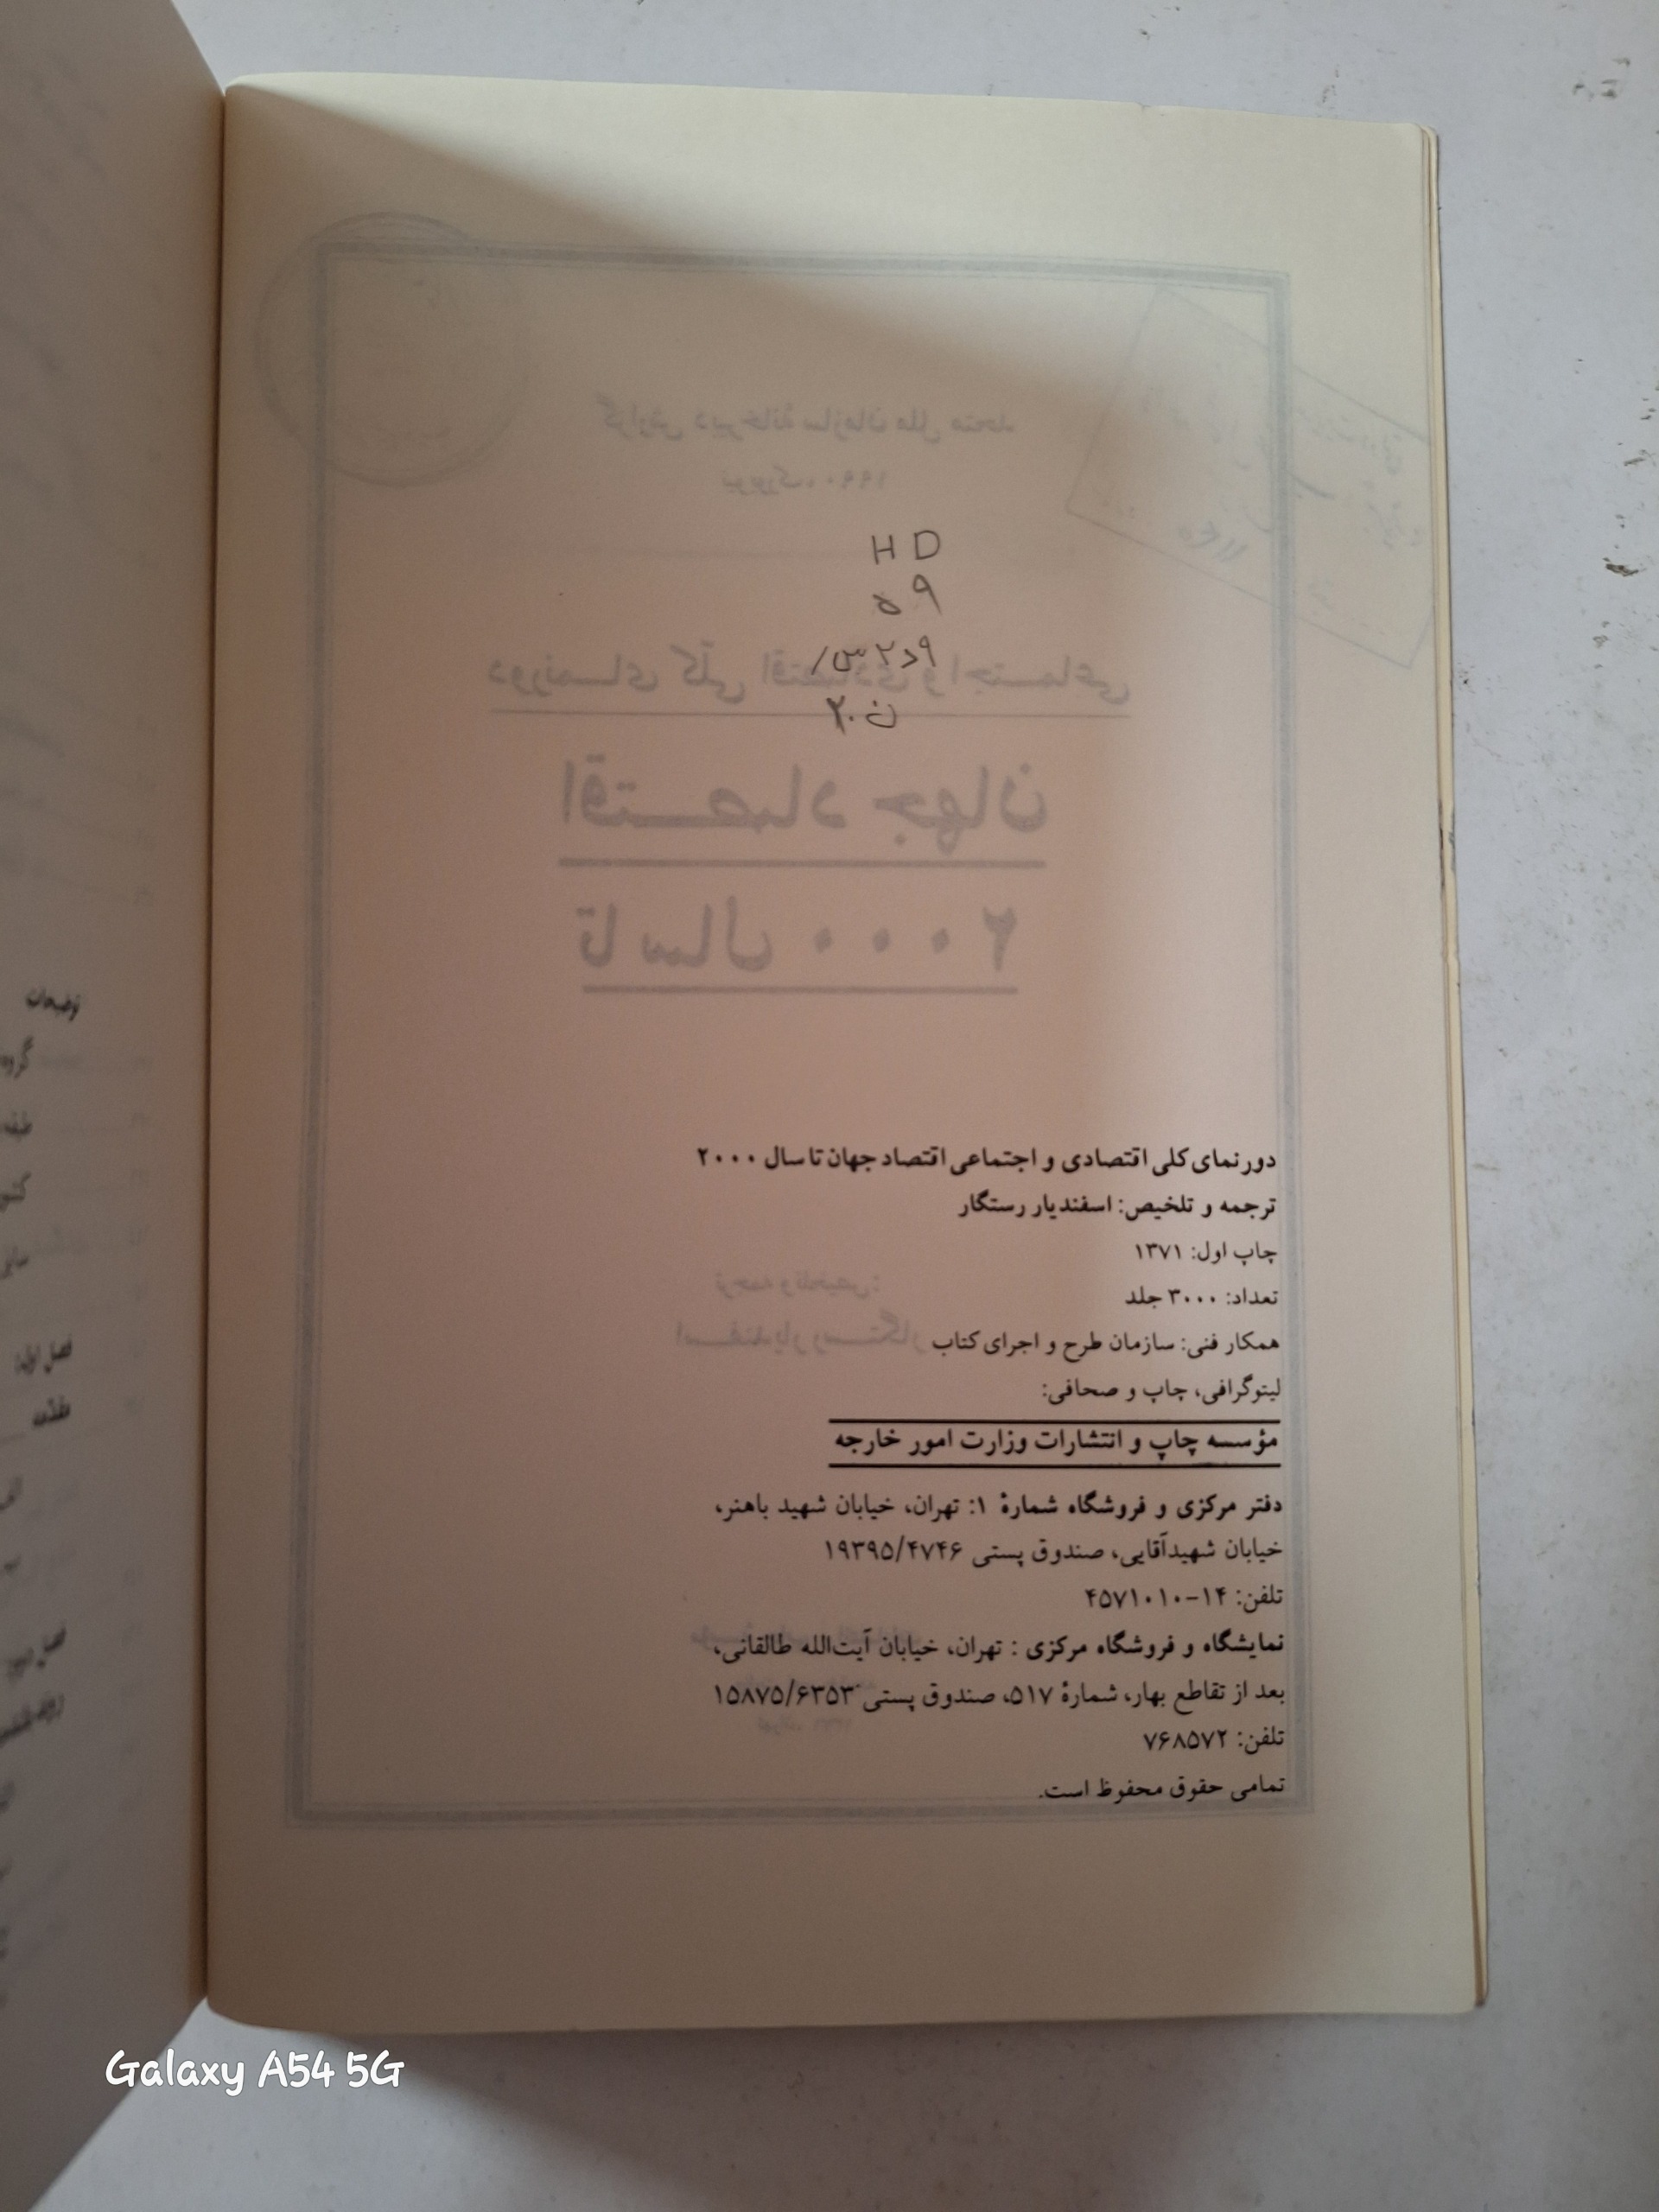 HD
۹۵
دورنمای کلی اقتصادی و اجتماعی اقتصاد جهان تا سال ۲۰۰۰
ترجمه و تلخیص: اسفندیار رستگار
چاپ اول: ۱۳۷۱
تعداد: ۳۰۰۰ جلد
همکار فنی: سازمان طرح و اجرای کتاب
لیتوگرافی، چاپ و صحافی:
مؤسسه چاپ و انتشارات وزارت امور خارجه
دفتر مرکزی و فروشگاه شمارهٔ ۱: تهران، خیابان شهید باهنر،
خیابان شهیدآقایی، صندوق پستی ۱۹۳۹۵/۴۷۴۶
تلفن: ۱۴-۴۵۷۱۰۱۰
نمایشگاه و فروشگاه مرکزی : تهران، خیابان آیت‌الله طالقانی،
بعد از تقاطع بهار، شمارهٔ ۵۱۷، صندوق پستی ۱۵۸۷۵/۶۳۵۳
تلفن: ۷۶۸۵۷۲
تمامی حقوق محفوظ است.
توضیحات
گروه
فصل اول:
مقدّمه
Galaxy A54 5G